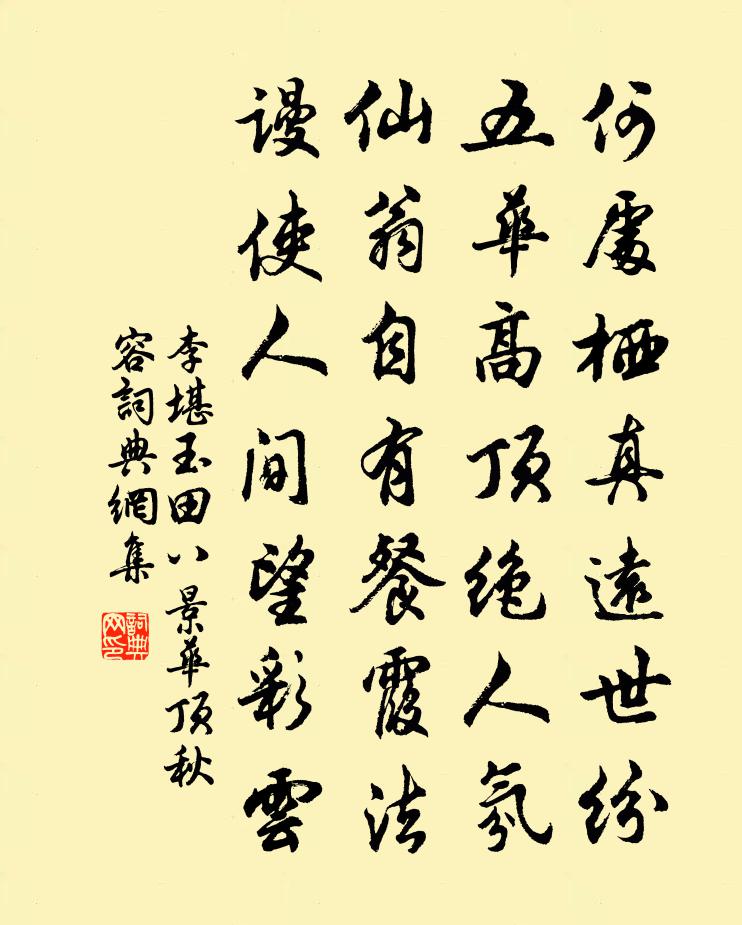 何處栖真遠世紛
五華高頂绝人氛
仙翁自有餐霞法
謾使人间望彩雲
李堪玉田八景華顶秋
容詞典網集
詞典网印